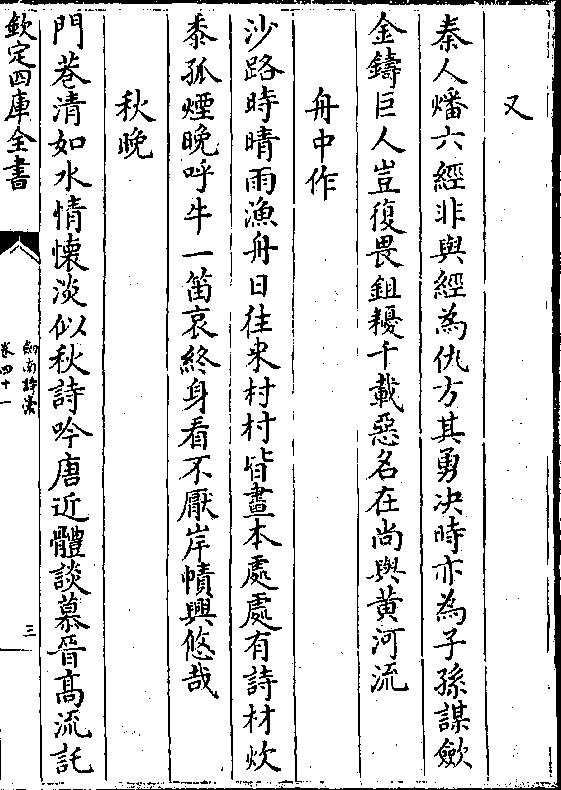 又
秦人燔六經非與經為仇方其勇决時亦為子孫謀歛
金鑄巨人豈復畏鉏耰千載惡名在尚與黄河流
舟中作
沙路時晴雨漁舟日往来村村皆畫本處處有詩材炊
黍孤煙晚呼牛一笛哀終身看不厭岸幘興悠哉
秋晚
門巷清如水情懐淡似秋詩吟唐近體談慕晉髙流託
欽定四庫全書
劍南詩藁
卷四十一
三